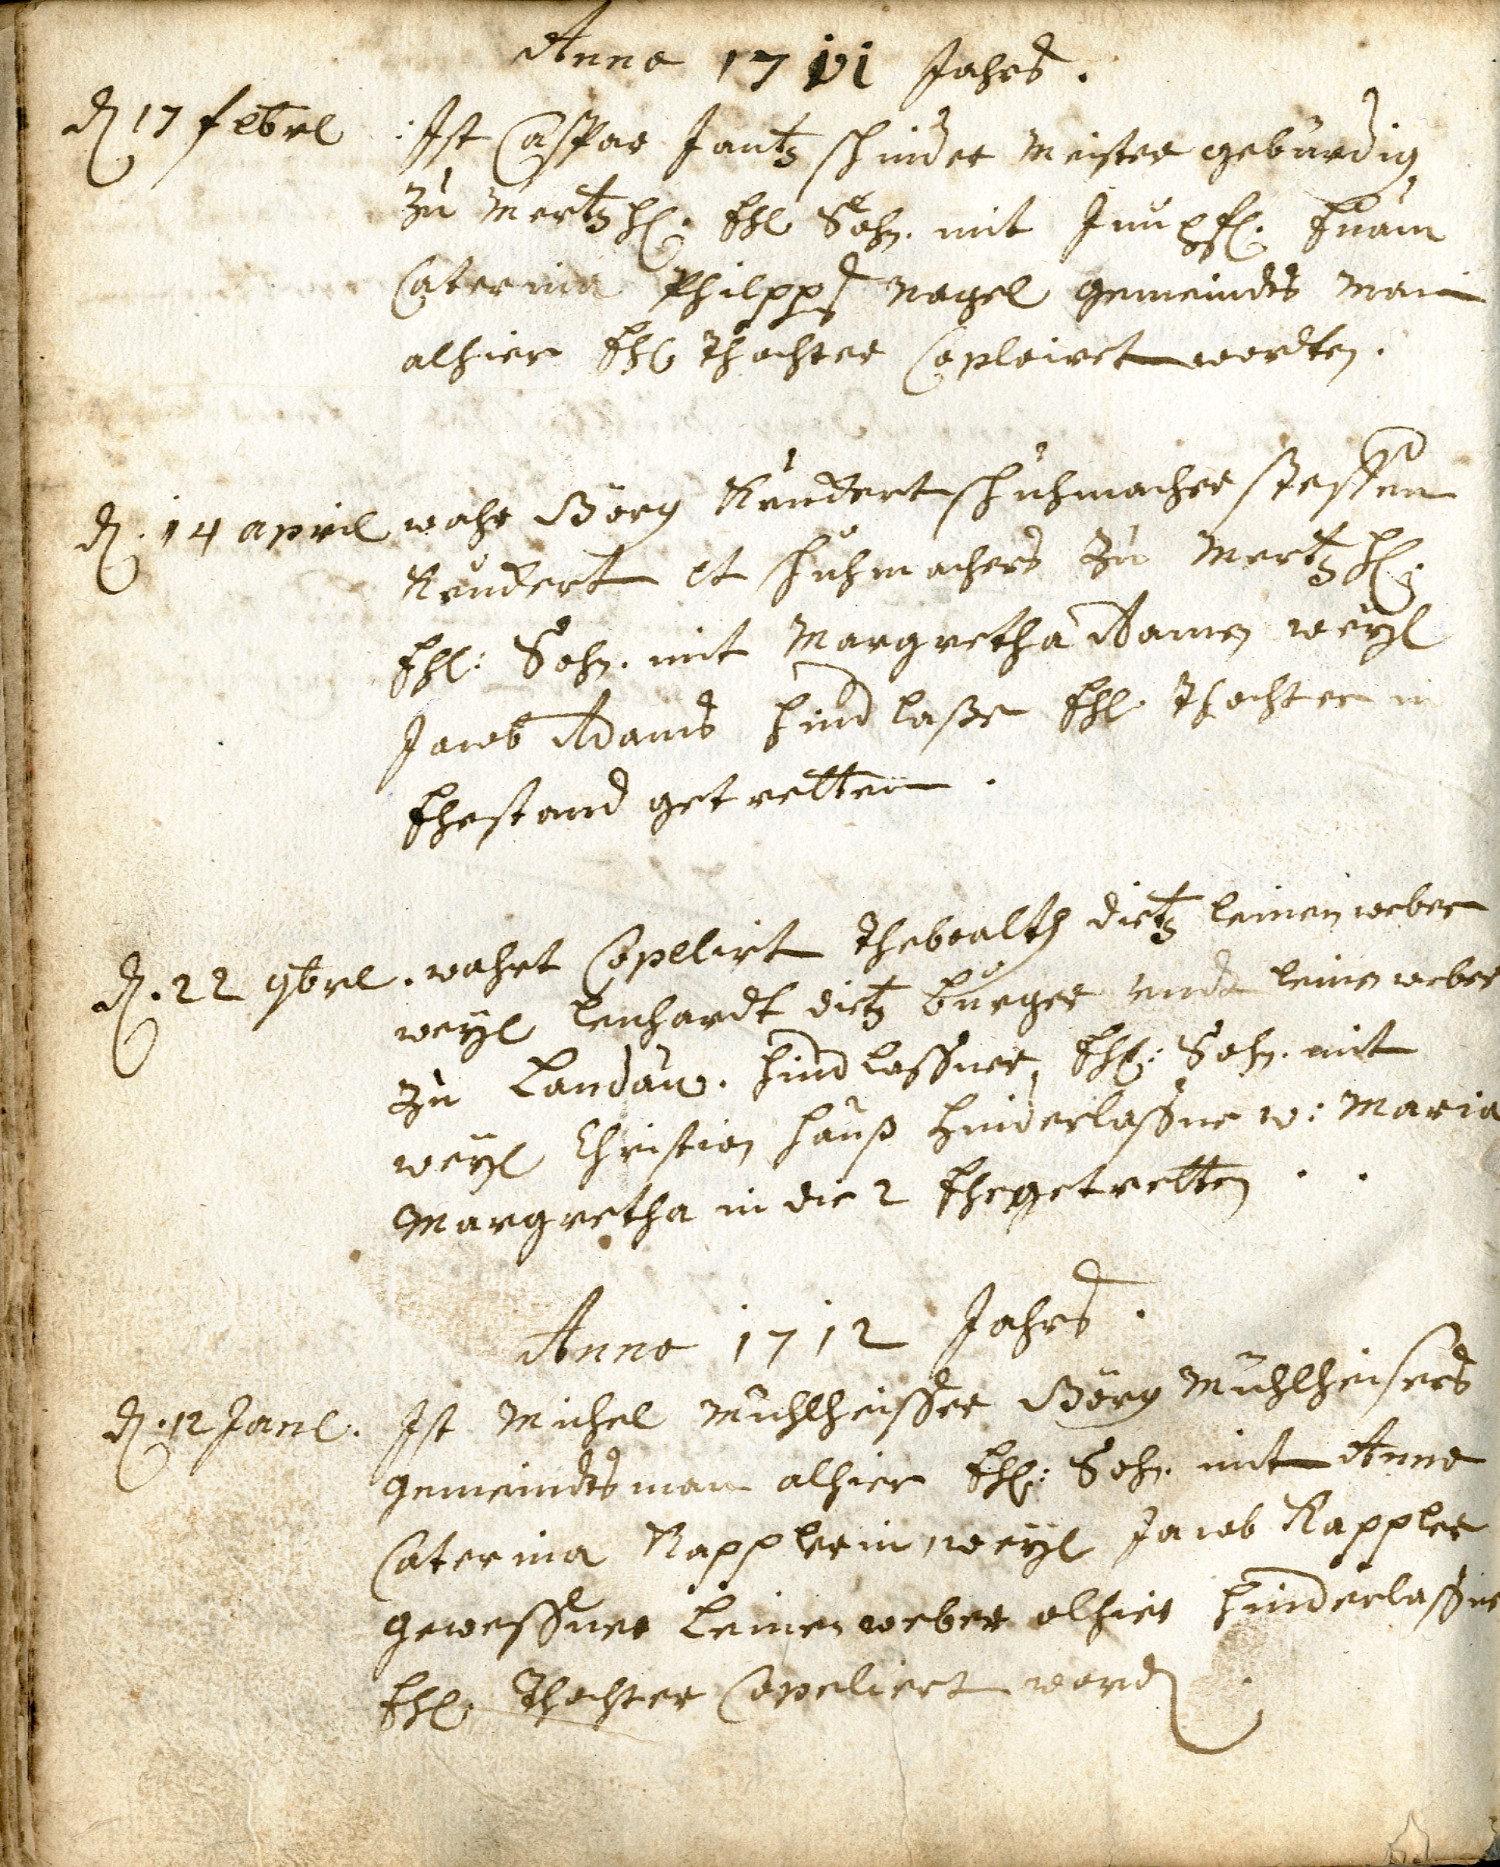 Anno 1711 Jahrs.
D 17 febrl Ist Caspar Jantz schnider Meister gebürdig
zu Mertzh. Ehl Sohn. mit Jungf.
Caterina Philpps Nagel gemeindts Man
alhier Ehl Thochter Copleirt wordten.
D. 14 april wahr Görg Kundert schuhmacher Steffen
Kundert et schuhmachers zu Mertzh.
Ehl: Sohn. mit Margretha Adamen weyl
Jacob Adams hind laße Ehl. Thochter in
Ehestand getretten.
D. 22 9brl. wahrt Copllirt Thebealth dietz leinenweber
weyl lenhardt dietz burger undt leinenweber
zu Landau. hindlassner, Ehl: Sohn. mit
weyl Christian hauß hinderlaßne w: Maria
Margretha in die 2 Ehe getretten . .
Anno 1712 Jahrs.
D. 12 Janl. Ist Michel Mühlheisser Görg Mühlheisers
gemeindtsman alhier Ehl: Sohn. mit Anna
Caterina Kapplerin weyl Jacob Kappler
gewessner Leinenweber alhier hinderlaßne
Ehl. Thochter Copeliert word